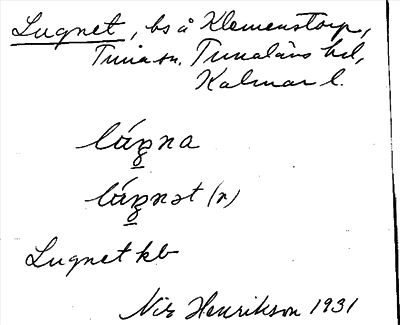 Lugnet, bs å Klemenstorp,
Tuna sn. Tunaläns hd,
Kalmar l.
lágna
lágnət (n)
Lugnet kb
Nils Henrikson 1931